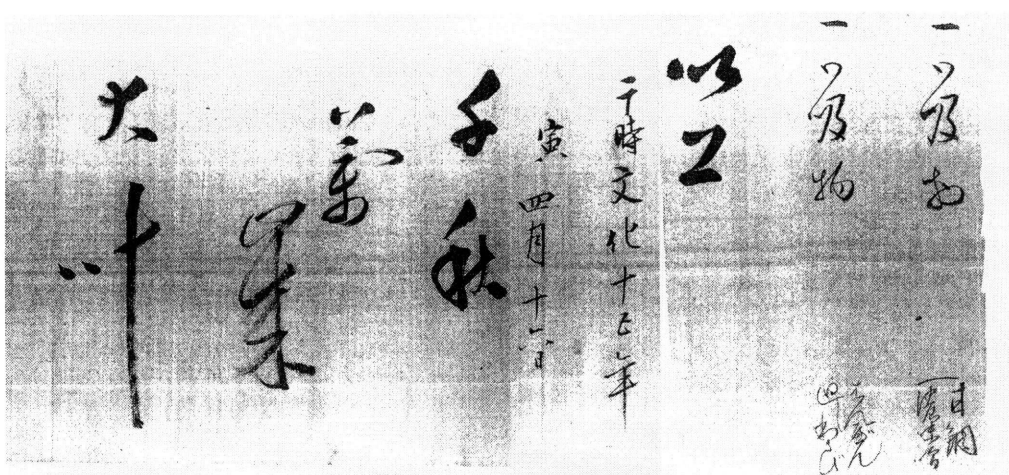 一 吸物
甘鯛
一 吸物
以上
于時文化十五年
寅 四月十六日
千秋
萬
歳
大叶